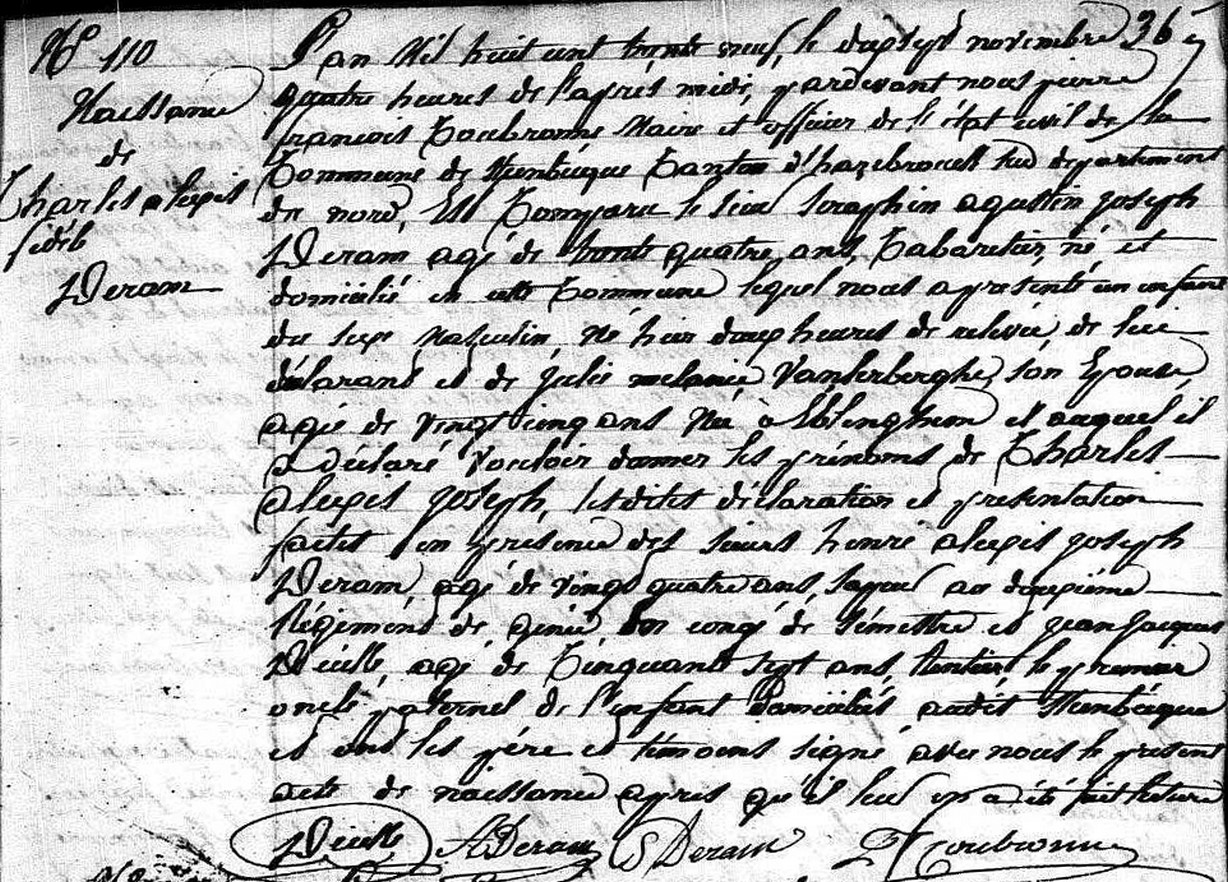 N° 110
Naissance
de
Charles alexis
fidel
Deram
L'an Mil huit cent trente neuf, le dixsept novembre 36
quatre heures de l'après midi, pardevant nous pierre
francois Coubronne Maire et officier de l'état civil de la
Commune de Steenbecque Canton d'hazebrouck sud département
du nord, Est Comparu le sieur Seraphin agustin joseph
Deram agé de trente quatre ans, Cabaretier, né et
domicilié en cette Commune lequel nous a presenté un enfant
du sexe Masculin, Né hier deux heures de relevée, de lui
déclarant et de julie melanie Vanlerberghe, son Epouse,
agée de vingt cinq ans Née à Eblinghem et auquel il
a déclaré Vouloir donner les prénoms de Charles
alexis joseph, lesdites déclaration et presentation
faites en presence des sieurs henri alexis joseph
Deram, agé de vingt quatre ans, sapeur au deuxième
Régiment de génie, en congé de sémestre et jean jacques
Dicille, agé de Cinquante sept ans, Rentier, le premier
oncle paternel de l'enfant Domiciliés audit Steenbecque
et ont les père et témoins signé avec nous le present
acte de naissance après qu'il leur en a été fait lecture
ADeram SDeram Coubronne